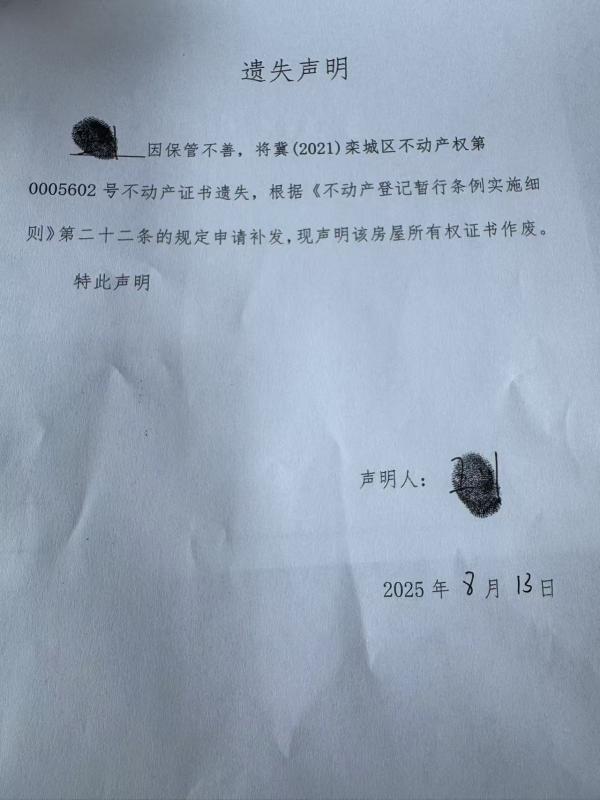 遗失声明
因保管不善，将冀(2021)栾城区不动产权第
0005602号不动产证书遗失，根据《不动产登记暂行条例实施细
则》第二十二条的规定申请补发，现声明该房屋所有权证书作废。
特此声明
声明人：
2025年8月13日